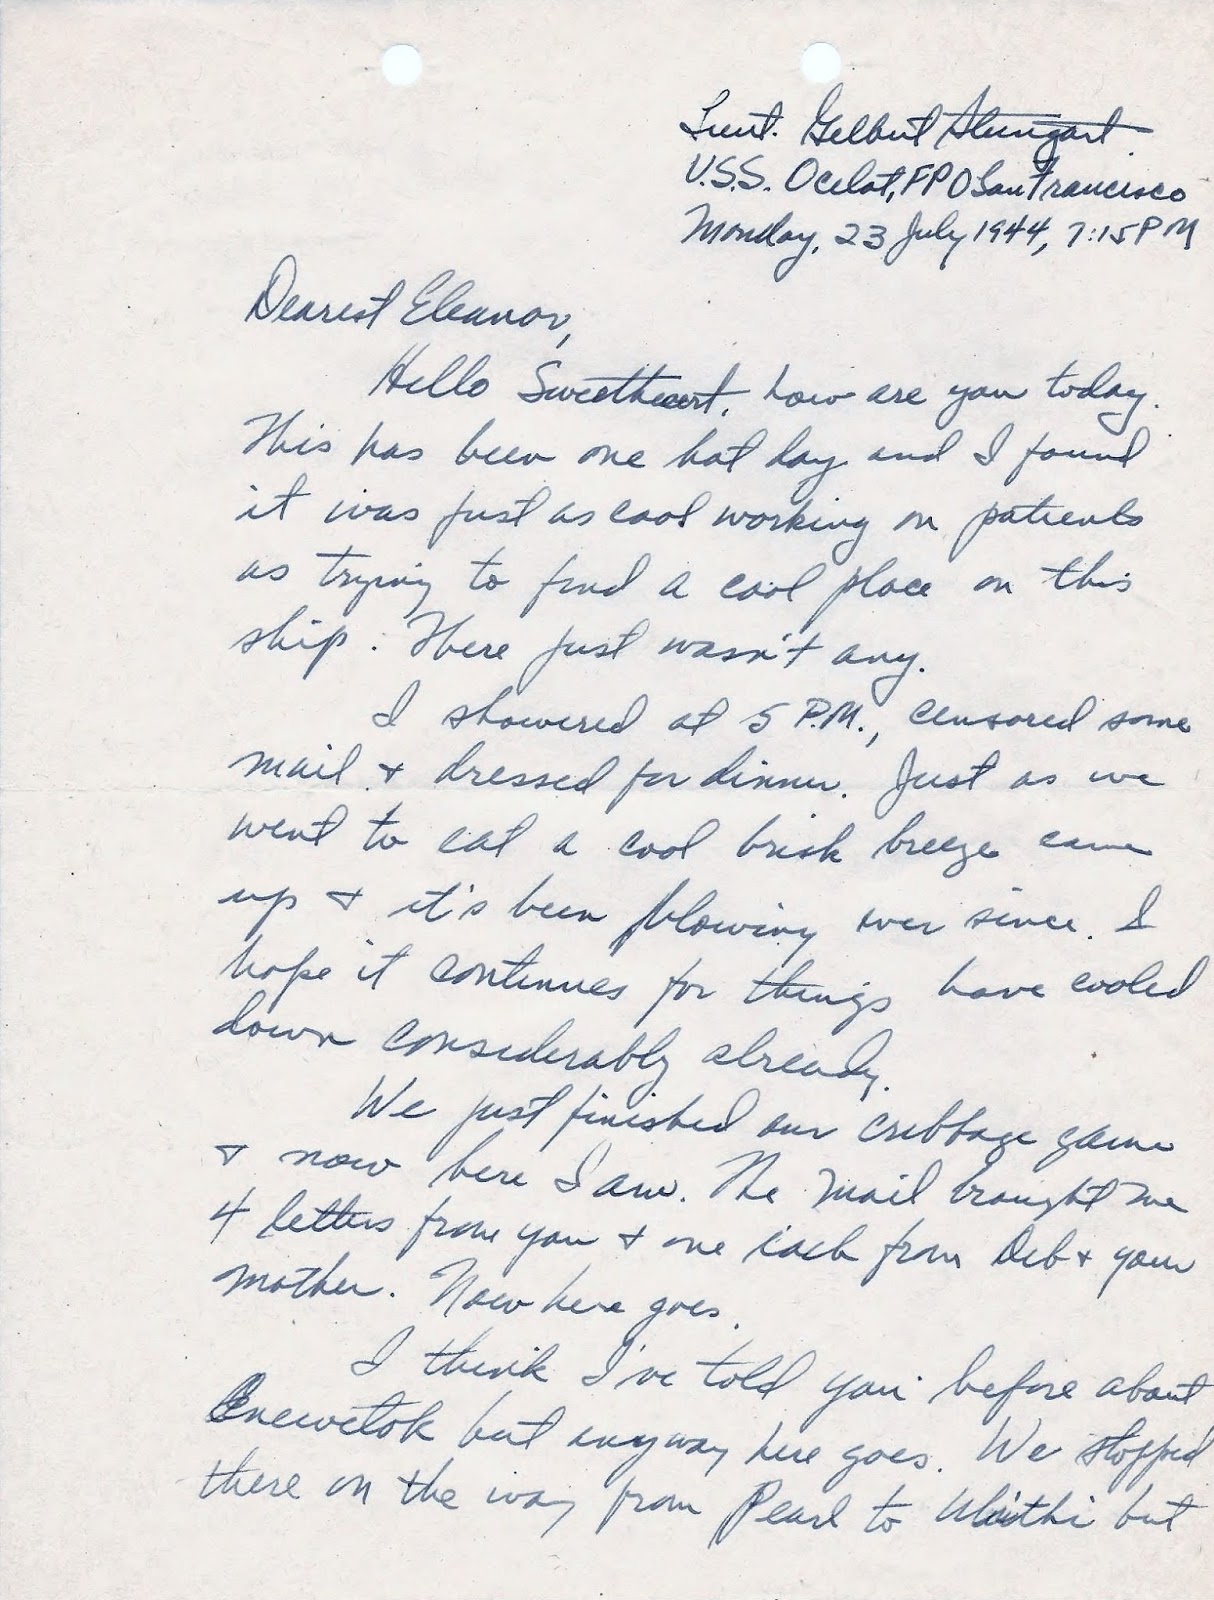 Lieut. Gilbert Steingart
U.S.S. Ocelot, FPO San Francisco
Monday, 23 July 1944, 7:15 PM
Dearest Eleanor,
Hello Sweetheart, how are you today.
This has been one hot day and I found
it was just as cool working on patients
as trying to find a cool place on this
ship. There just wasn't any.
I showered at 5 P.M., censored some
mail & dressed for dinner. Just as we
went to eat a cool brisk breeze came
up & it's been blowing ever since. I
hope it continues for things have cooled
down considerably already.
We just finished our cribbage game
& now here I am. The mail brought me
4 letters from you & one each from Deb & your
mother. Now here goes.
I think I've told you before about
Enewetok but anyway here goes. We stopped
there on the way from Pearl to Ulithi but